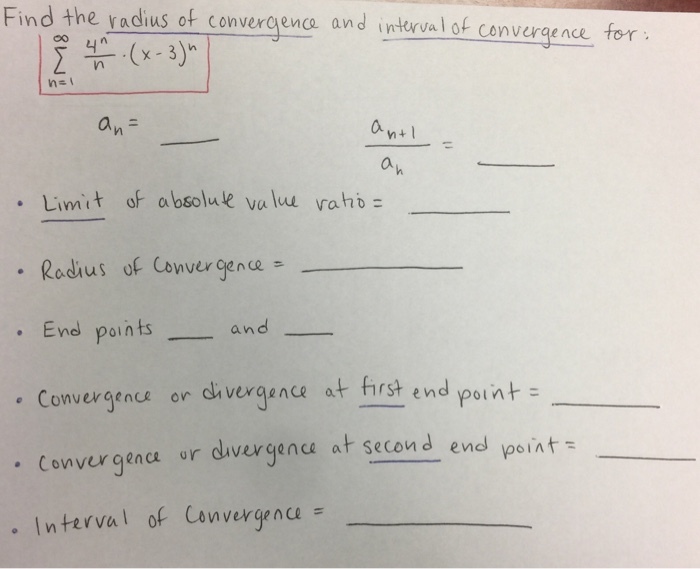 Find the radius of convergence and interval of convergence for:
∞
Σ 4ⁿ/n · (x-3)ⁿ
n=1
aₙ = ___ aₙ₊₁/aₙ = ___
• Limit of absolute value ratio = ___
• Radius of Convergence = ___
• End points ___ and ___
• Convergence or divergence at first end point = ___
• Convergence or divergence at second end point = ___
• Interval of Convergence = ___